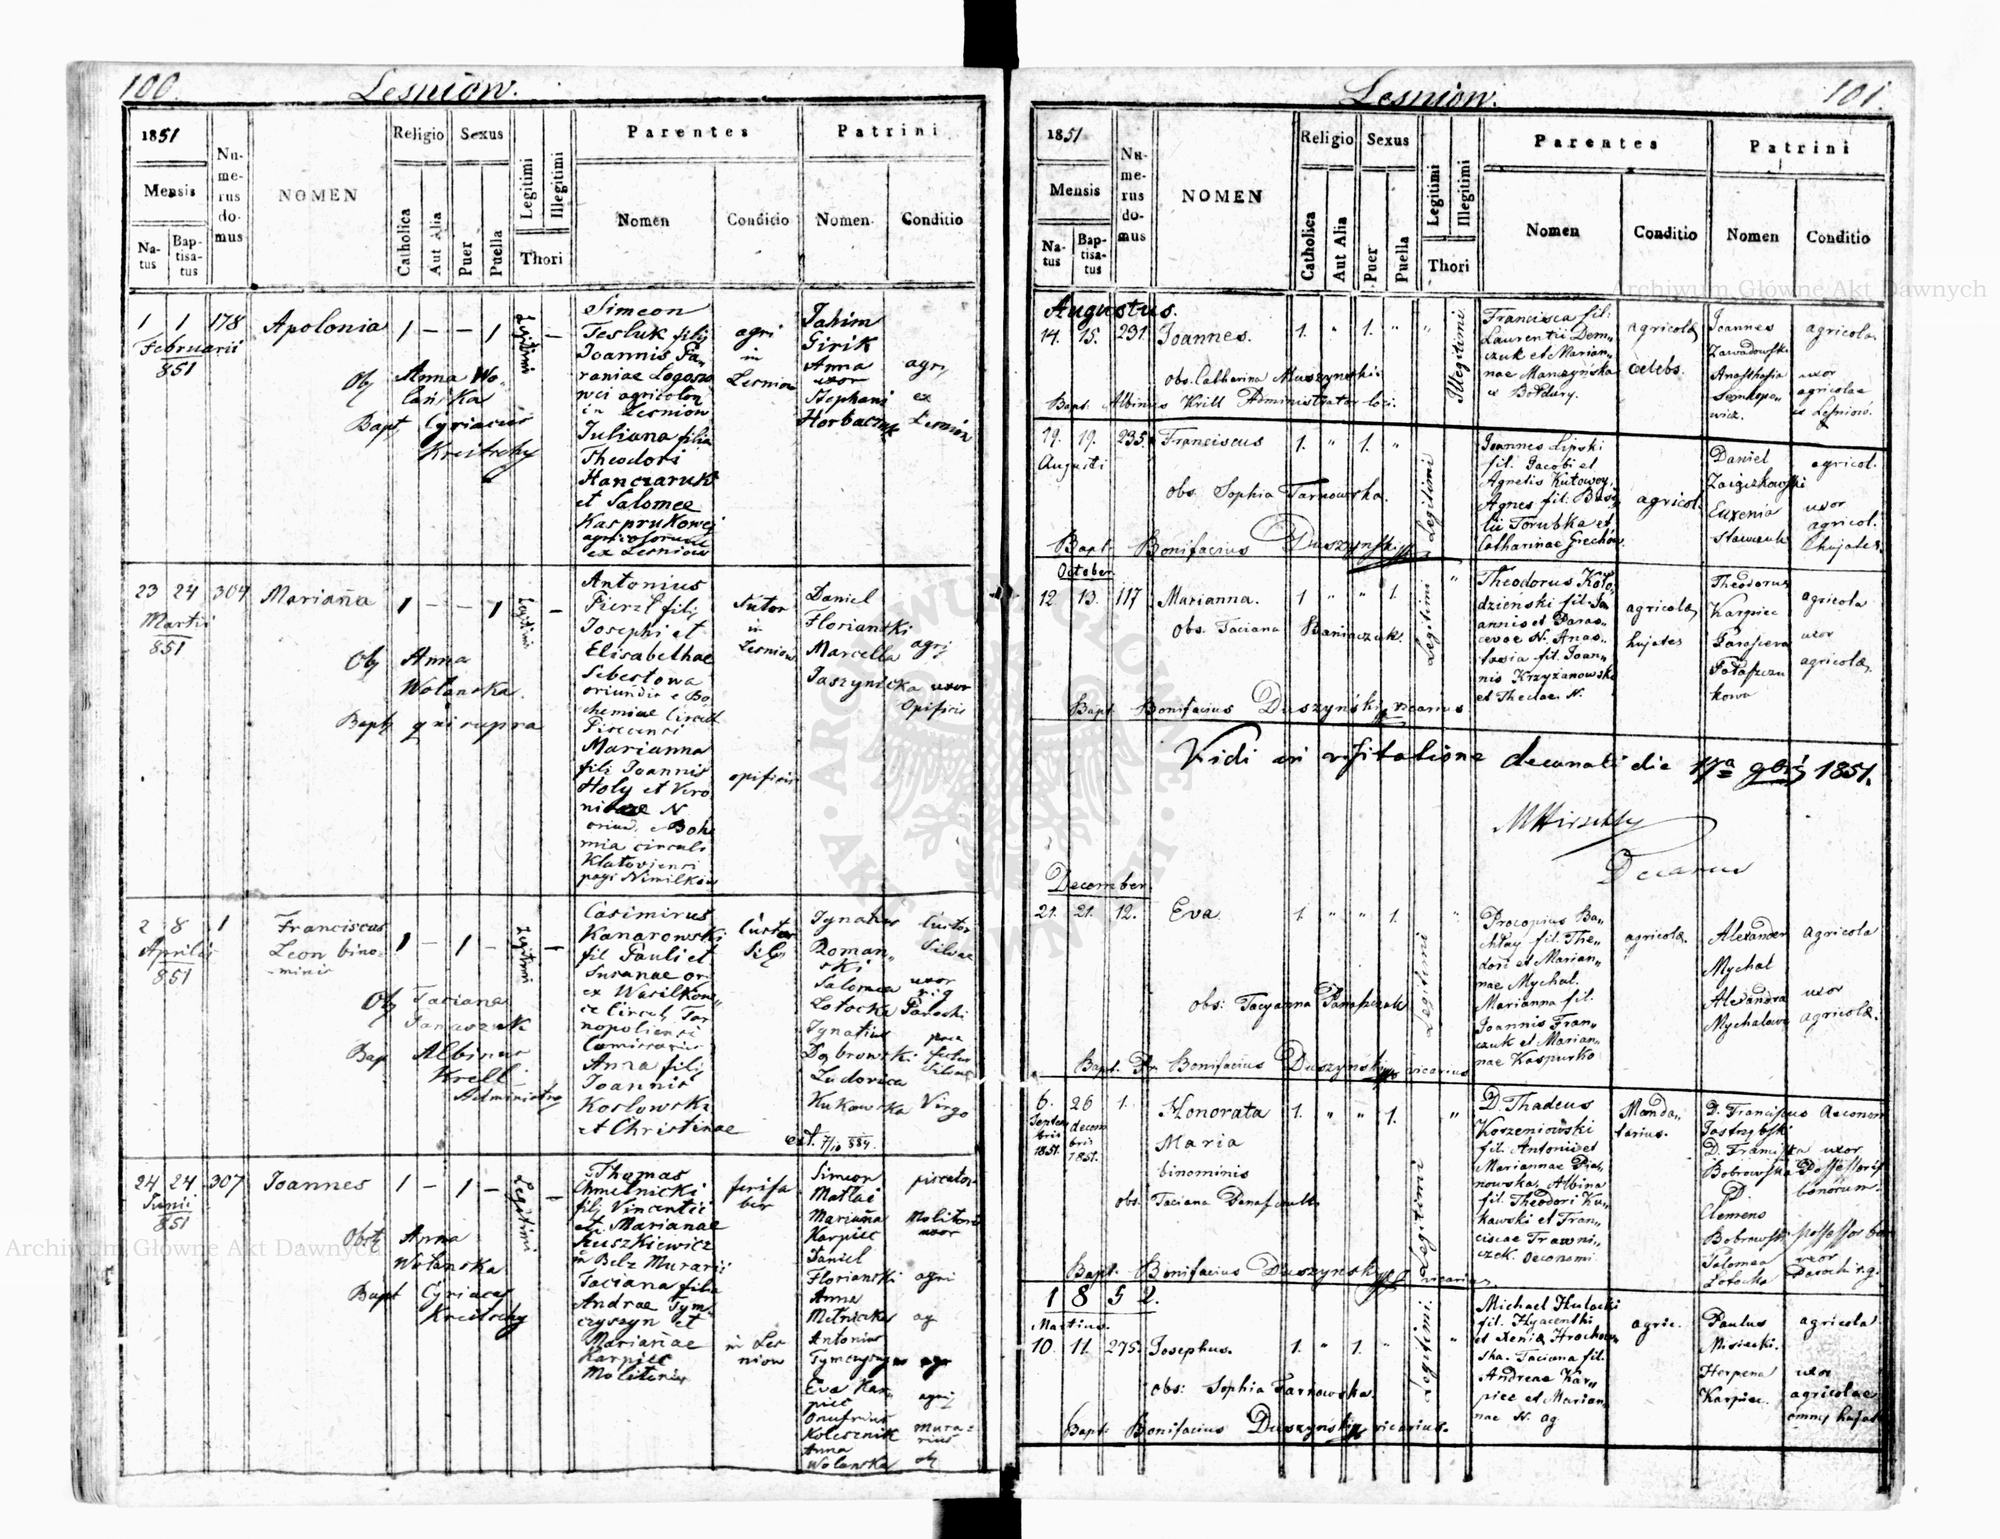 100.
Lesniów.
1851
Mensis
Na-
tus
Bap-
tisa-
tus
Nu-
me-
rus
do-
mus
NOMEN
Religio
Catholica
Aut Alia
Sexus
Puer
Puella
Legitimi
Illegitimi
Thori
Parentes
Nomen
Conditio
Patrini
Nomen
Conditio
1 1 178
Februarii
851
Apolonia
1 – – 1
Legitimi
–
Ob
Anna Wo-
lańska
Bapt Cyriacus
Kreitschy
Simeon
Tesluk filij
Joannis Pa-
raniae
agricolon
in Lesniow
Juliana filia
Theodori
Hanczaruk
et Salomee
Kasprukowej
agricolorum
ex Lesniow
agri
in
Lesniow
Jahim
Girik
Anna
uxor
Stephani
Horbaczuk
agri
ex
Lesniów
23 24 304
Martii
851
Marianna
1 – – 1
Legitimi
–
Ob Anna
Wolanska
Bapt qui supra
Antonius
Pierzl filij
Josephi et
Elisabethae
Sebestowa
oriundis e Bo-
chemiae Circul
Piscensi
Marianna
filj Joannis
Holy et Vero
nicae N
oriund. e Bohe
mia circuli
Klatoviensi
pagi Nimilkow
Sutor
in
Lesniow
opificis
Daniel
Florianski
Marcella
Jaszynicka
agrj
uxor
Opificis
2 8 1
Aprilis
851
Franciscus
Leon bino-
minis
1 – 1 –
Legitimi
–
Ob Taciana
Panaszuk
Bap Albinus
Krell
Administra
Casimirus
Kanarowski
fil Pauli et
Susanae ori
ex Wasilkow-
ce Circul. Tar
nopoliensi
Anna filj
Joannis
Koslowski
et Christinae
Custos
Silv
Ignatius
Roman-
ski
Salomea
Lotocka
Ignatius
Dąbrowski
Ludovica
Kukowska
Custos
Silvae
uxor
Parochi
Silvae
Virgo
ext. 7/10 884.
24 24 307
Junii
851
Joannes
1 – 1 –
Legitimi
–
Obst Anna
Wolanska
Bapt Cyriacus
Kreitschy
Thomas
Chmelnicki
filj Vincentii
et Marianae
Kuszkiewicz
in Belz Murarii
Taciana filia
Andrae Tym-
czyszyn et
Mariannae
Karpiec
Molitoris
ferifa
ber
in Les
niow
Simeon
Matlai
Marianna
Karpiec
Daniel
Florianski
Anna
Melnicka
Antonius
Eva Kar-
piec
Onufrius
Kolesznik
Anna
Wolanska
piscator
Molitoris
uxor
agri
ag
agr
agrij
Mura-
rius
ob
Lesniow.
101.
1851
Mensis
Na-
tus
Bap-
tisa-
tus
Nu-
me-
rus
do-
mus
NOMEN
Religio
Catholica
Aut Alia
Sexus
Puer
Puella
Legitimi
Illegitimi
Thori
Parentes
Nomen
Conditio
Patrini
Nomen
Conditio
Augustus.
14. 15. 231. Joannes. 1. " 1. " "
Illegitimi
obs. Catharina Muszynski.
Bapt. Albinus Krill Administrator loci.
Francisca fil:
Laurentii Dem-
czuk et Marian-
nae Manczyńska
e Bołdury.
agricolæ
celebs.
Joannes
Zawadowski
Anasthasia
agricola
uxor
agricolae
is Leśniow.
19. 19. 235. Franciscus 1. " 1. "
Augusti
Legitimi
obs. Sophia Tarnowska.
Bapt. Bonifacius Duszynski
Joannes Lipski
fil. Jacobi et
Agnetis Kutowoy,
Agnes fil: Basi
lii Torubka et
Catharinae Grechow.
agricol.
Daniel
Zaiączkowski
Euxenia
Stawczuk
agricol.
uxor
agricol.
hujates.
October
12. 13. 117 Marianna. 1 " " 1. "
Legitimi
Obs. Taciana Baniaczuk.
Bapt. Bonifacius Duszyński vicarius
Theodorus Koło-
dzieński fil. Jo-
annis et Paras-
cevae N. Anas-
tasia fil. Joan-
nis Krzyżanowski
et Theclae. N.
agricolæ
hujates
Theodorus
Karpiec
Parascewa
Potapczu
kowa
agricola
uxor
agricolæ,
Vidi in visitatione decanali die 17a 9bris 1851.
MHirschly
Decanus
December.
21. 21. 12. Eva 1. " " 1. "
Legitimi
obs: Tacyanna Panaszczuk
Bapt. Fr. Bonifacius Duszynski vicarius
Procopius Ba-
chłay fil. The-
dori et Marian-
nae Mychal.
Marianna fil.
Joannis Fran-
czuk et Marian-
nae Kaspurko
agricolæ.
Alexander
Mychal
Alexandra
Mychalowa
agricola
uxor
agricolæ.
6. 26 1.
Septem
bris
1851.
decem
bris
1851.
Honorata
Maria
binominis
1. " " 1. "
Legitimi
obs: Taciana Panaszczuk
Bapt. Bonifacius Duszynski vicarius
D. Thadeus
Korzeniowski
fil. Antonii et
Mariannae Pia-
nowska, Albina
fil. Theodori Ku-
kawski et Fran-
ciscae Trawni-
czek. oeconomi
Manda-
tarius.
D. Franciscus
Jastrzębski
D. Franciska
Bobrowska
D
Clemens
Bobrowski
Salomea
Lotocka
Aeconom
uxor
Possessoris
bonorum.
possessor bon
uxor
Parochi r.g.
1 8 5 2.
Martius.
10. 11. 275. Josephus. 1. " 1. " "
Legitimi.
obs: Sophia Tarnowska.
Bapt. Bonifacius Duszyński vicarius.
Michael Hulacki
fil. Hyacenthi
et Xenia Hrochow
ska. Taciana fil.
Andreae Kar-
piec et Marian
nae N. ag
agric.
Paulus
Misiecki.
Herpena
Karpiec.
agricola
uxor
agricolae
omnes hujat
Archiwum Główne Akt Dawnych
Archiwum Główne Akt Dawnych
ARCHIWUM GŁÓWNE AKT DAWNYCH